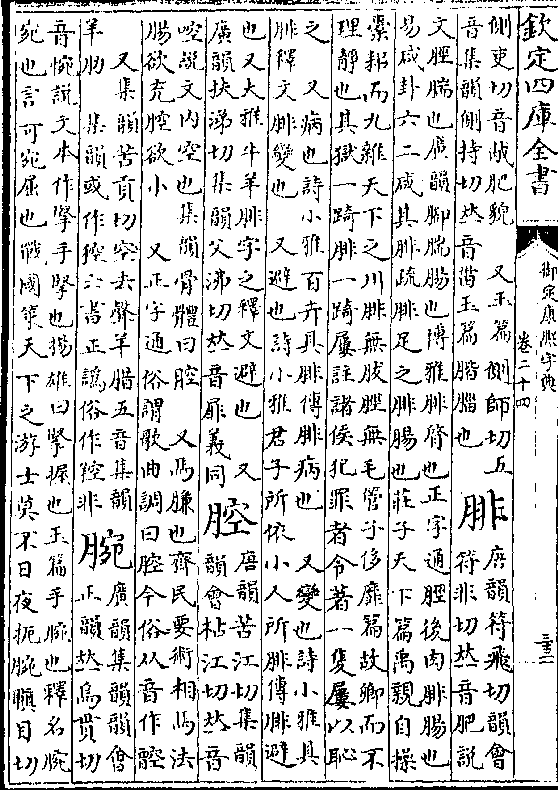 欽定四庫全書
御定康熙字典
卷二十四
側吏切音胾肥貌　又玉篇側師切五
音集韻側持切𠀤音菑玉篇腦也
腓
唐韻符飛切韻會
符非切𠀤音肥說
文脛腨也廣韻腳腨腸也博雅腓𦟛也正字通脛後肉腓腸也
易咸卦六二咸其腓疏腓足之腓腸也莊子天下篇禹親自操
槖耜而九雜天下之川腓無胈脛無毛管子侈靡篇故卿而不
理靜也其獄一踦腓一踦屨註諸侯犯罪者令著一隻屨以恥
之　又病也詩小雅百卉具腓傳腓病也　又變也詩小雅具
腓釋文腓變也　又避也詩小雅君子所依小人所腓傳腓避
也又大雅牛羊腓字之釋文避也　又
廣韻扶涕切集韻父沸切𠀤音屝義同
腔
唐韻苦江切集韻
韻會枯江切𠀤音
啌說文內空也集韻骨體曰腔　又馬臁也齊民要術相馬法
腸欲充腔欲小　又正字通俗謂歌曲調曰腔今俗从音作䪫
　又集韻苦貢切空去聲羊腊五音集韻
羊肋　集韻或作𦡇六書正譌俗作羫非
腕
廣韻集韻韻會
正韻𠀤烏貫切
音惋說文本作掔手掔也揚雄曰掔握也玉篇手腕也釋名腕
宛也言可宛屈也戰國策天下之游士莫不日夜扼腕瞋目切